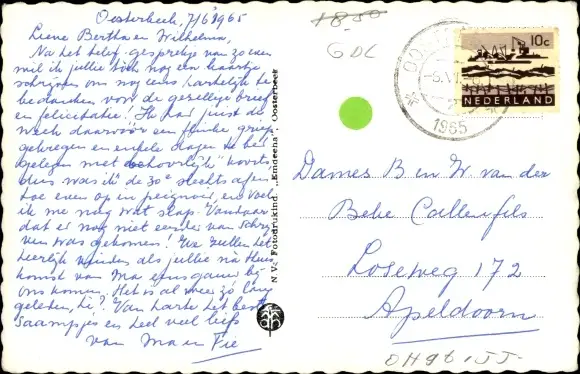 Oosterbeek, 7/6 1965
Lieve Bertha en Wilhelmina,
Na het telef. gesprekje van zoeven
wil ik jullie toch nog een kaartje
schrijven om nog eens hartelijk te
bedanken voor de gezellige brief
en felicitatie! Ik had juist de
week daarvoor een flinke griep
gekregen en enkele dagen te bed
gelegen met behoorlijk koorts
dus was ik de 30e slechts af en
toe even op in peignoir, en voel
ik me nog wat slap. Vandaar
dat er nog niet eerder van schrij
ven was gekomen! We zullen het
heerlijk vinden als jullie na thuis
komst van Ma eens gauw bij
ons komen. Het is al weer zó lang
geleden, hè? Van harte het beste
saampjes en heel veel liefs
van Ma en Fie
N.V. Fotodrukind. "Emdeeha", Oosterbeek
18.50
GDL
OO
1965
10c
NEDERLAND
Dames B en W. van der
Behe Callenfels
Loseweg 172
Apeldoorn